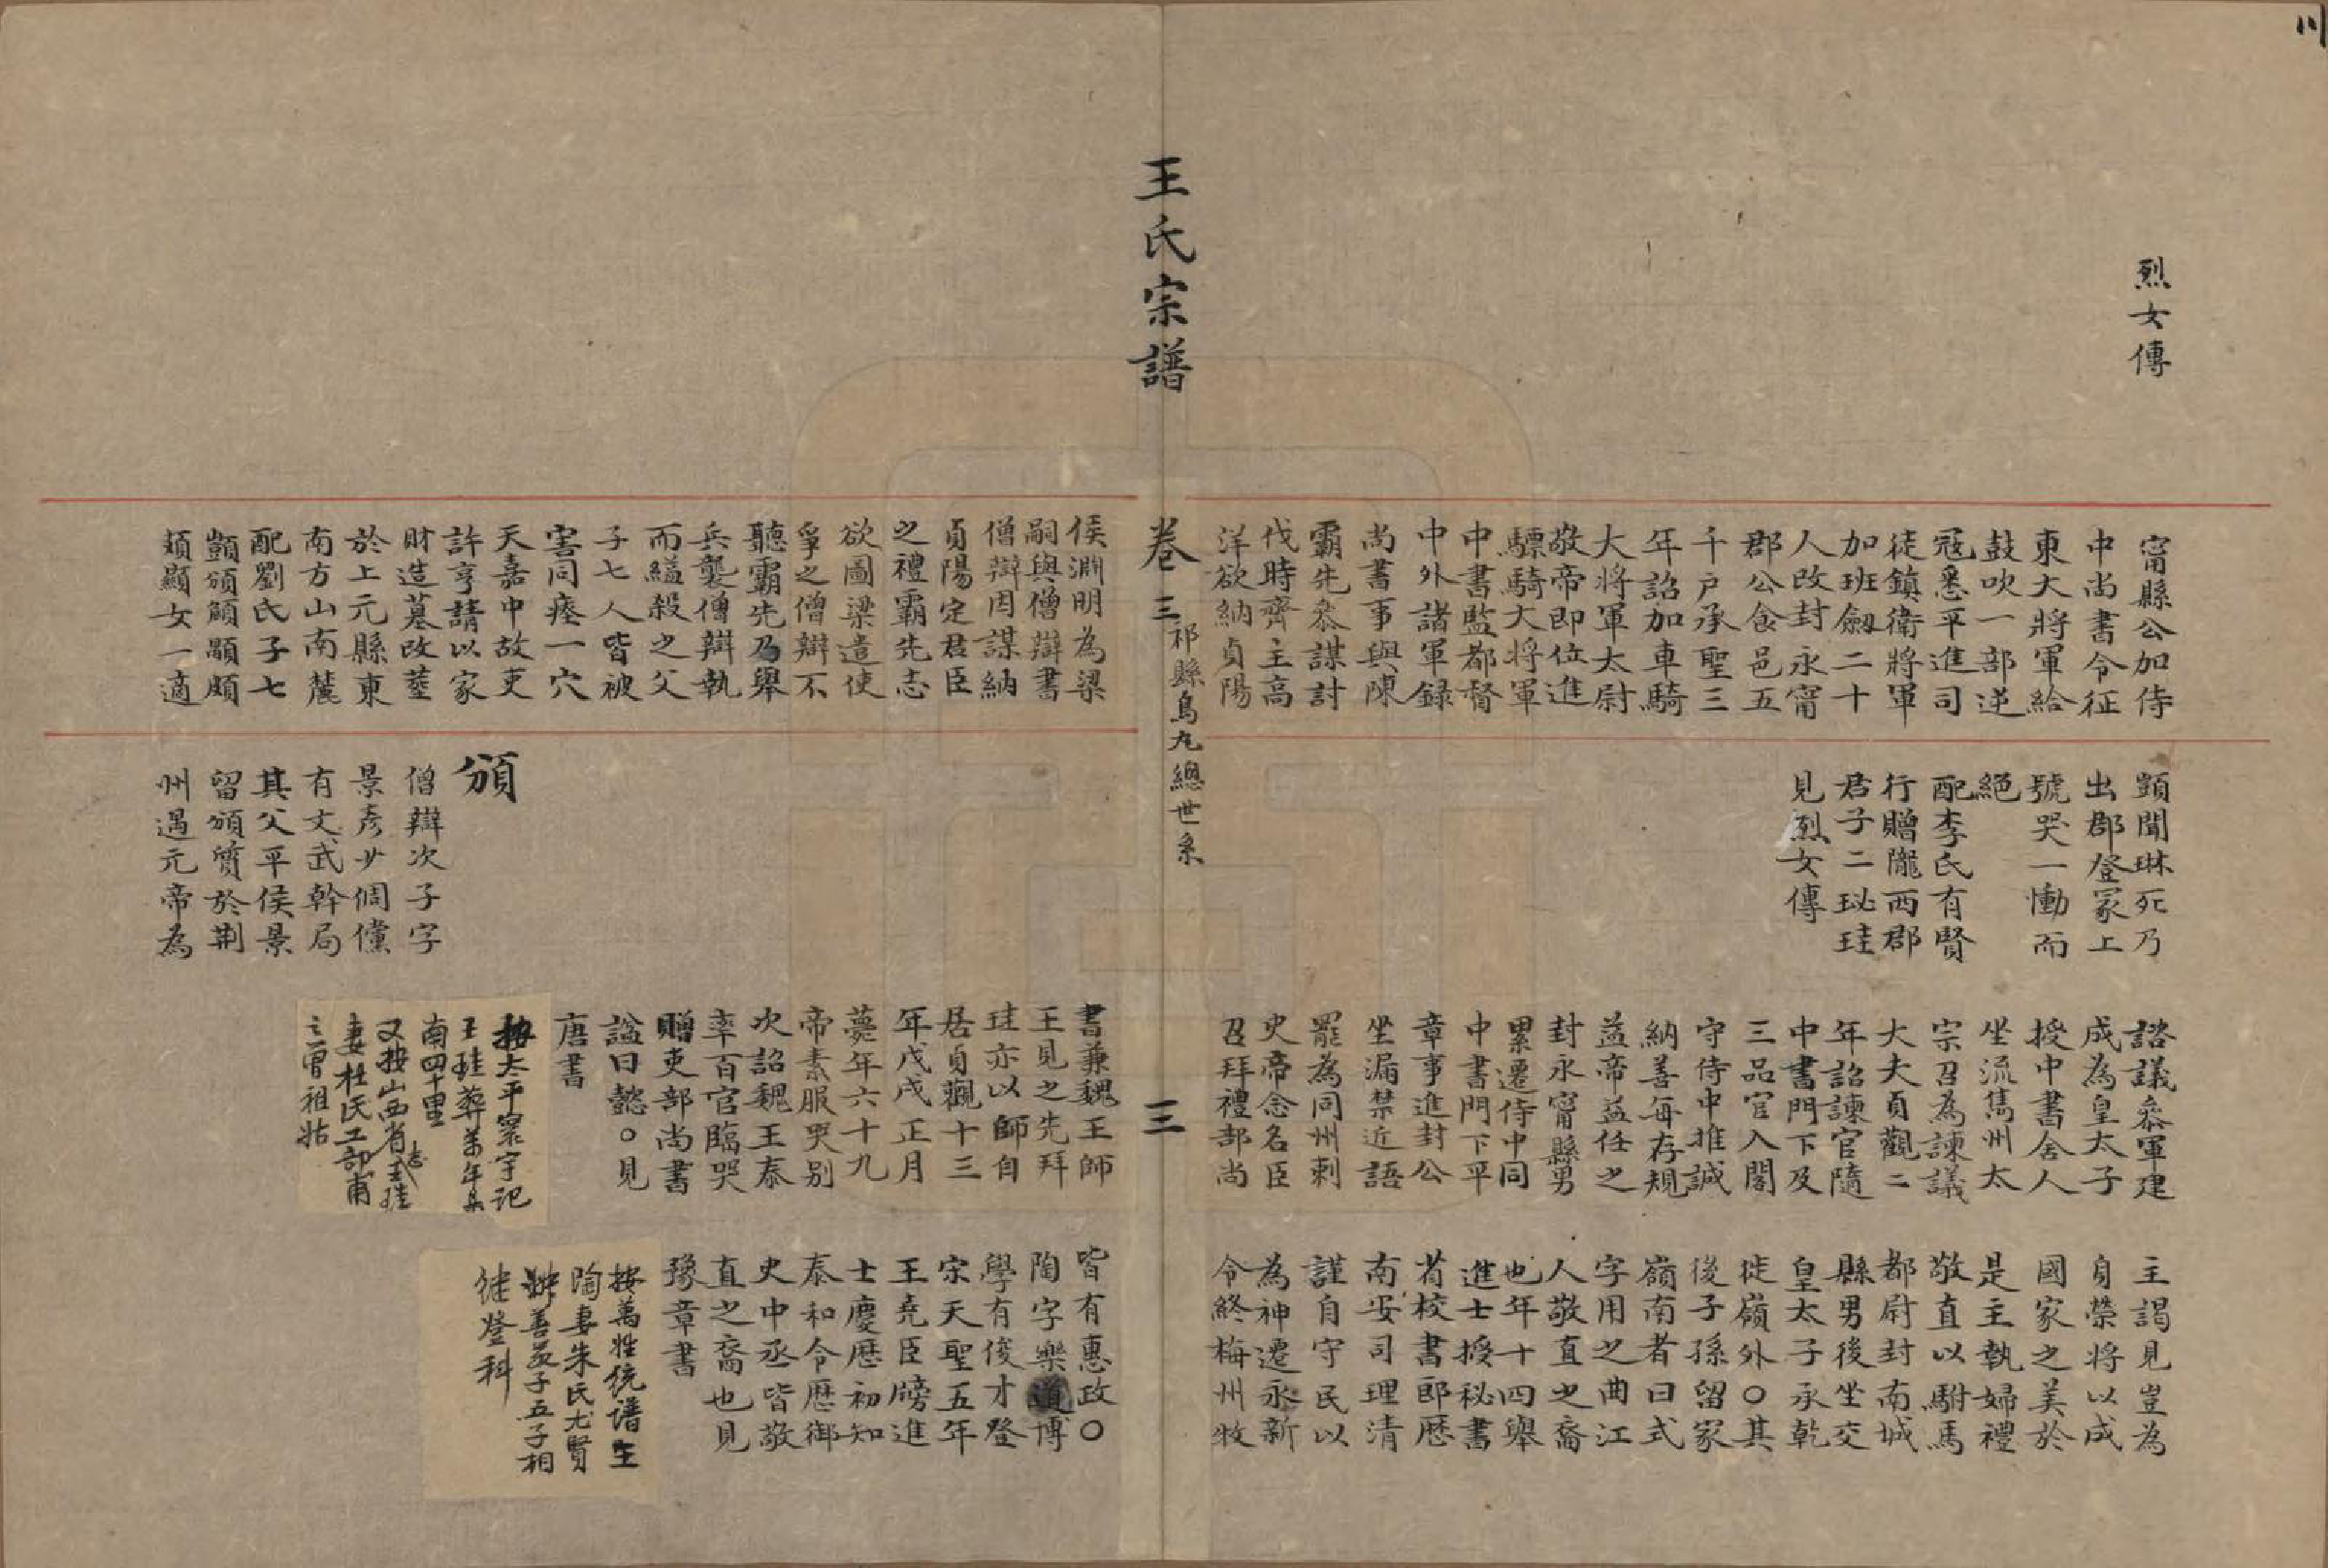 烈女傳
甯縣公加侍
中尚書令征
東大將軍給
鼓吹一部逆
冦悉平進司
徒鎮衛將軍
加班劔二十
人改封永甯
郡公食邑五
千戸承聖三
年詔加車騎
大將軍太尉
敬帝即位進
驃騎大將軍
中書監都督
中外諸軍録
尚書事與陳
霸先叅謀討
伐時齊主高
洋欲納貞陽
顗聞琳死乃
出郡登冢上
號哭一慟而
絕
配李氏有賢
行贈隴西郡
君子二珌珪
見烈女傳
諮議叅軍建
成為皇太子
授中書舍人
坐流雋州太
宗召為諫議
大夫貞觀二
年詔諫官隨
中書門下及
三品官入閣
守侍中推誠
納善每存規
益帝益任之
封永甯縣男
累遷侍中同
中書門下平
章事進封公
坐漏禁近語
罷為同州刺
史帝念名臣
召拜禮部尚
主謁見豈為
身榮將以成
國家之美於
是主執婦禮
敬直以駙馬
都尉封南城
縣男後坐交
皇太子承乾
徙嶺外○其
後子孫留家
嶺南者曰式
字用之曲江
人敬直之裔
也年十四舉
進士授秘書
省校書郎歷
南安司理清
謹自守民以
為神遷永新
令終梅州牧
王氏宗譜
卷三
祁縣烏丸總世系
三
侯淵明為梁
嗣與僧辯書
僧辯因謀納
貞陽定君臣
之禮霸先志
欲圖梁遣使
孚之僧辯不
聽霸先乃舉
兵襲僧辯執
而縊殺之父
子七人皆被
害同瘞一穴
天嘉中故吏
許亨請以家
財造墓改塟
於上元縣東
南方山南麓
配劉氏子七
顗頒顧顒頗
頍顯女一適
頒
僧辯次子字
景彥少倜儻
有文武幹局
其父平侯景
留頒質於荆
州遇元帝為
書兼魏王師
王見之先拜
珪亦以師自
居貞觀十三
年戊戌正月
薨年六十九
帝素服哭别
次詔魏王泰
率百官臨哭
贈吏部尚書
謚曰懿○見
唐書
按太平寰宇記
王珪葬萬年縣
南四十里
又按山西省志王珪
妻杜氏工部甫
之曾祖姑
皆有惠政○
陶字樂道博
學有俊才登
宋天聖五年
王堯臣牓進
士慶厯初知
泰和令厯御
史中丞皆敬
直之裔也見
豫章書
按萬姓統譜王
陶妻朱氏尤賢
善教子五子相
继登科